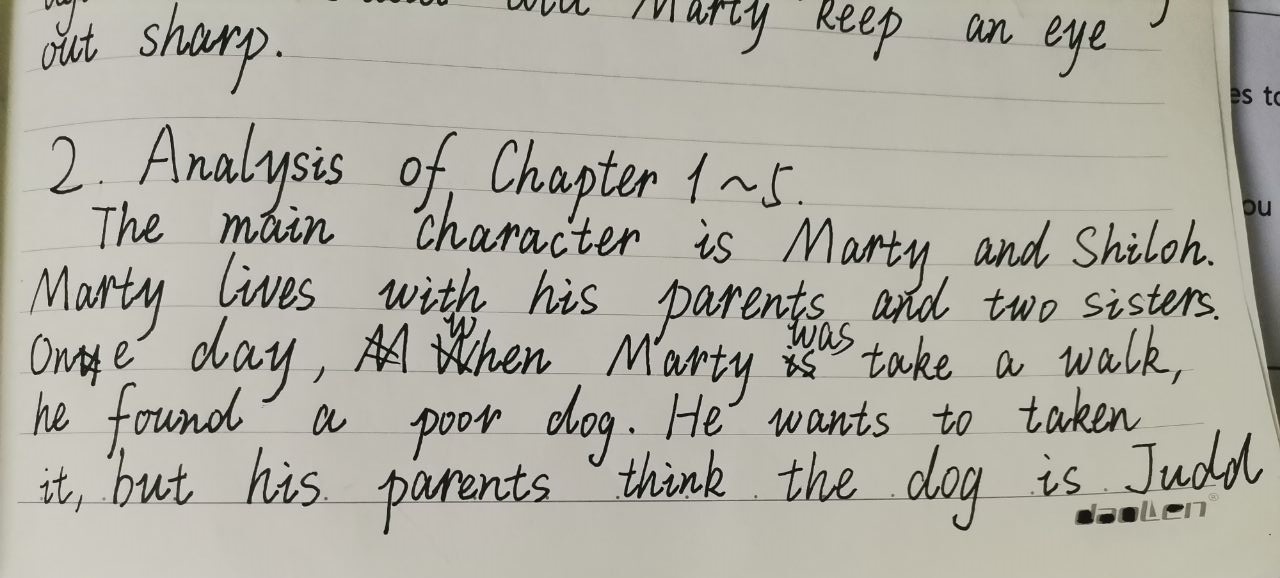 Marty keep an eye
out sharp.
2. Analysis of Chapter 1~5.
The main character is Marty and Shiloh.
Marty lives with his parents and two sisters.
One day, when Marty was take a walk,
he found a poor dog. He wants to taken
it, but his parents think the dog is Judd